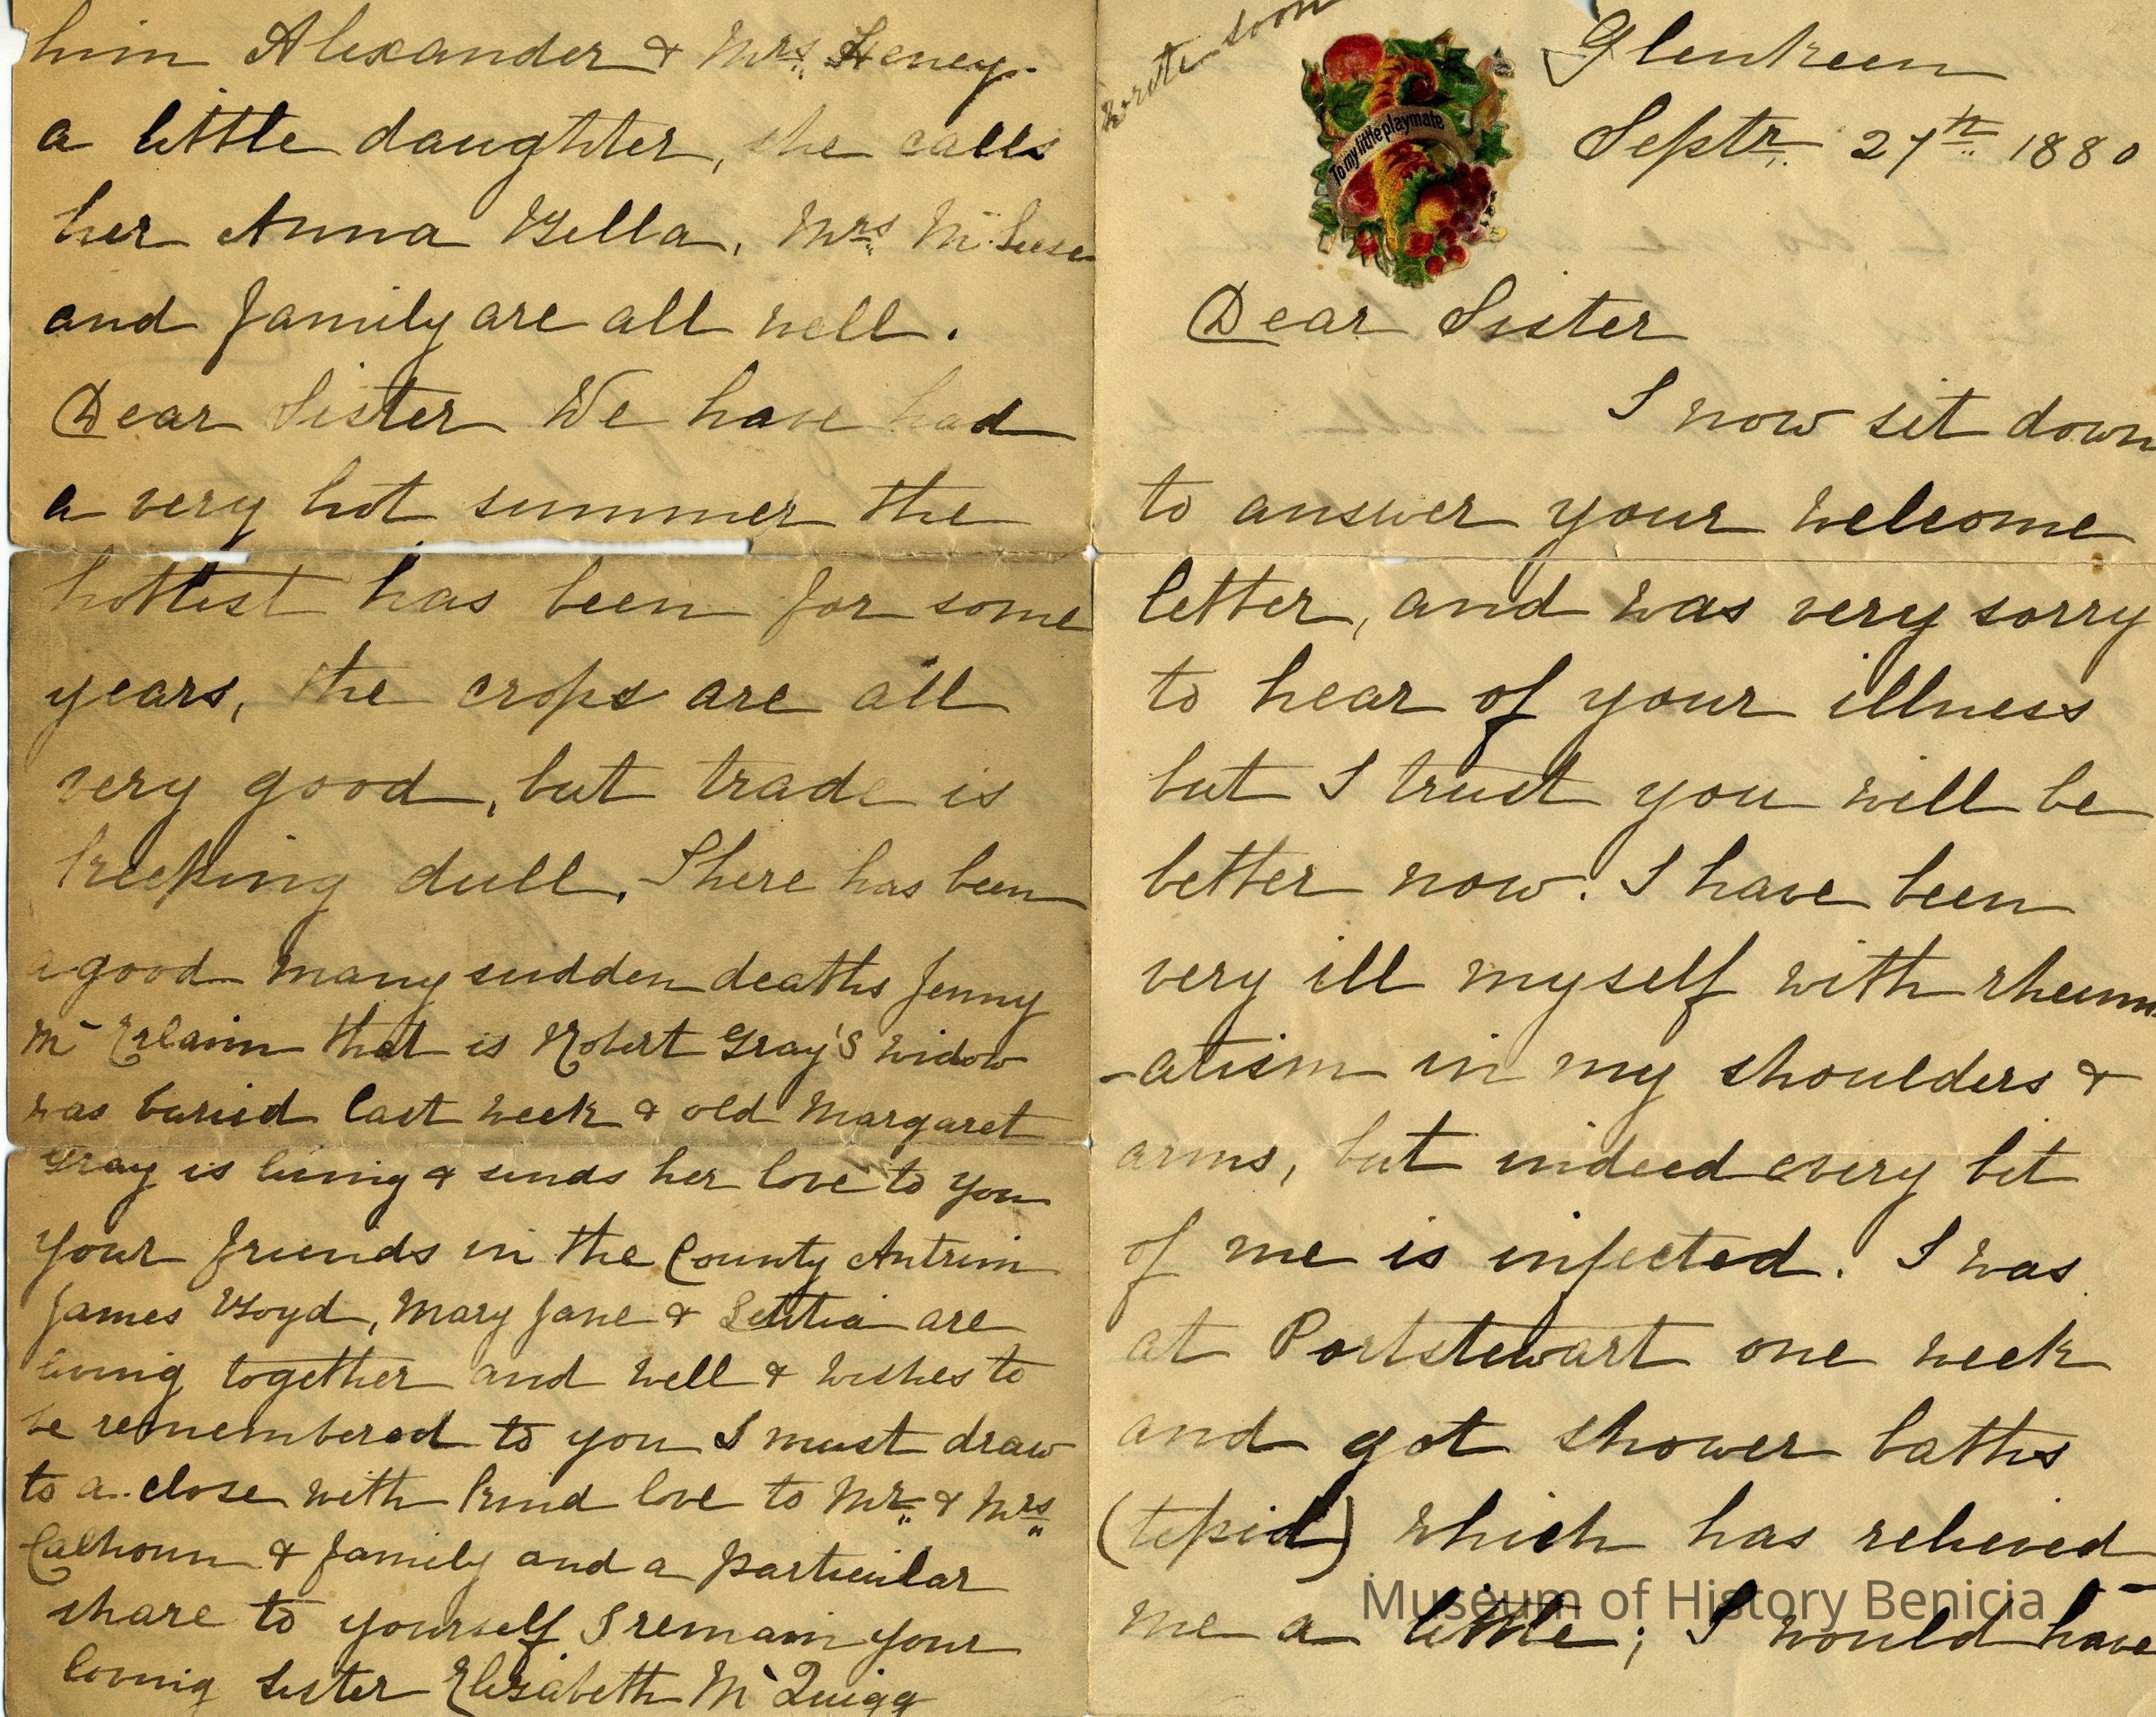 write soon
To my little playmate
Glenkeen
Septr. 27th 1880
Dear Sister
I now sit down
to answer your welcome
letter, and was very sorry
to hear of your illness
but I trust you will be
better now. I have been
very ill myself with rheum
-atism in my shoulders &
arms, but indeed every bit
of me is infected. I was
at Portstewart one week
and got shower baths
(tepid) which has relieved
me a little; I would have
him Alexander & Mrs. Heney.
a little daughter, she calls
her Anna Bella, Mrs Mc
and family are all well.
Dear Sister We have had
a very hot summer the
hottest has been for some
years, the crops are all
very good, but trade is
keeping dull. There has been
a good many sudden deaths Jenny
Mc that is Robert Gray's widow
was buried last week & old Margaret
Gray is living & sends her love to you
your friends in the County Antrim
James Boyd, Mary Jane & Letitia are
living together and well & wishes to
be remembered to you I must draw
to a close with kind love to Mr. & Mrs.
Calhoun & family and a particular
share to yourself I remain your
loving sister Elizabeth McQuigg
Museum of History Benicia